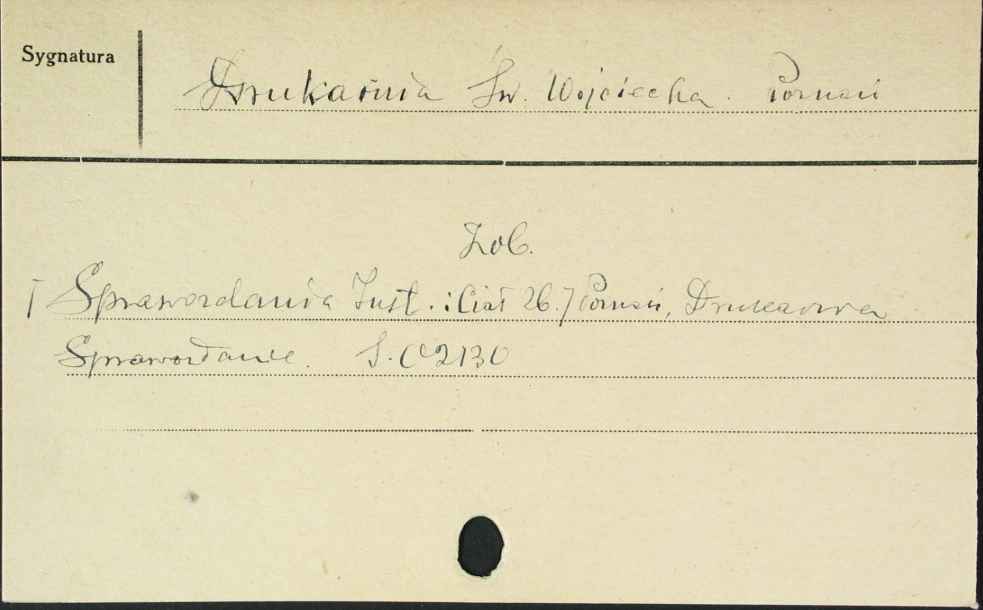 Sygnatura
Drukarnia Św. Wojciecha. Poznań
Zob.
Sprawozdania Inst. i Ciał 26.7 Poznań, Drukarnia
Sprawozdanie. S. 02130